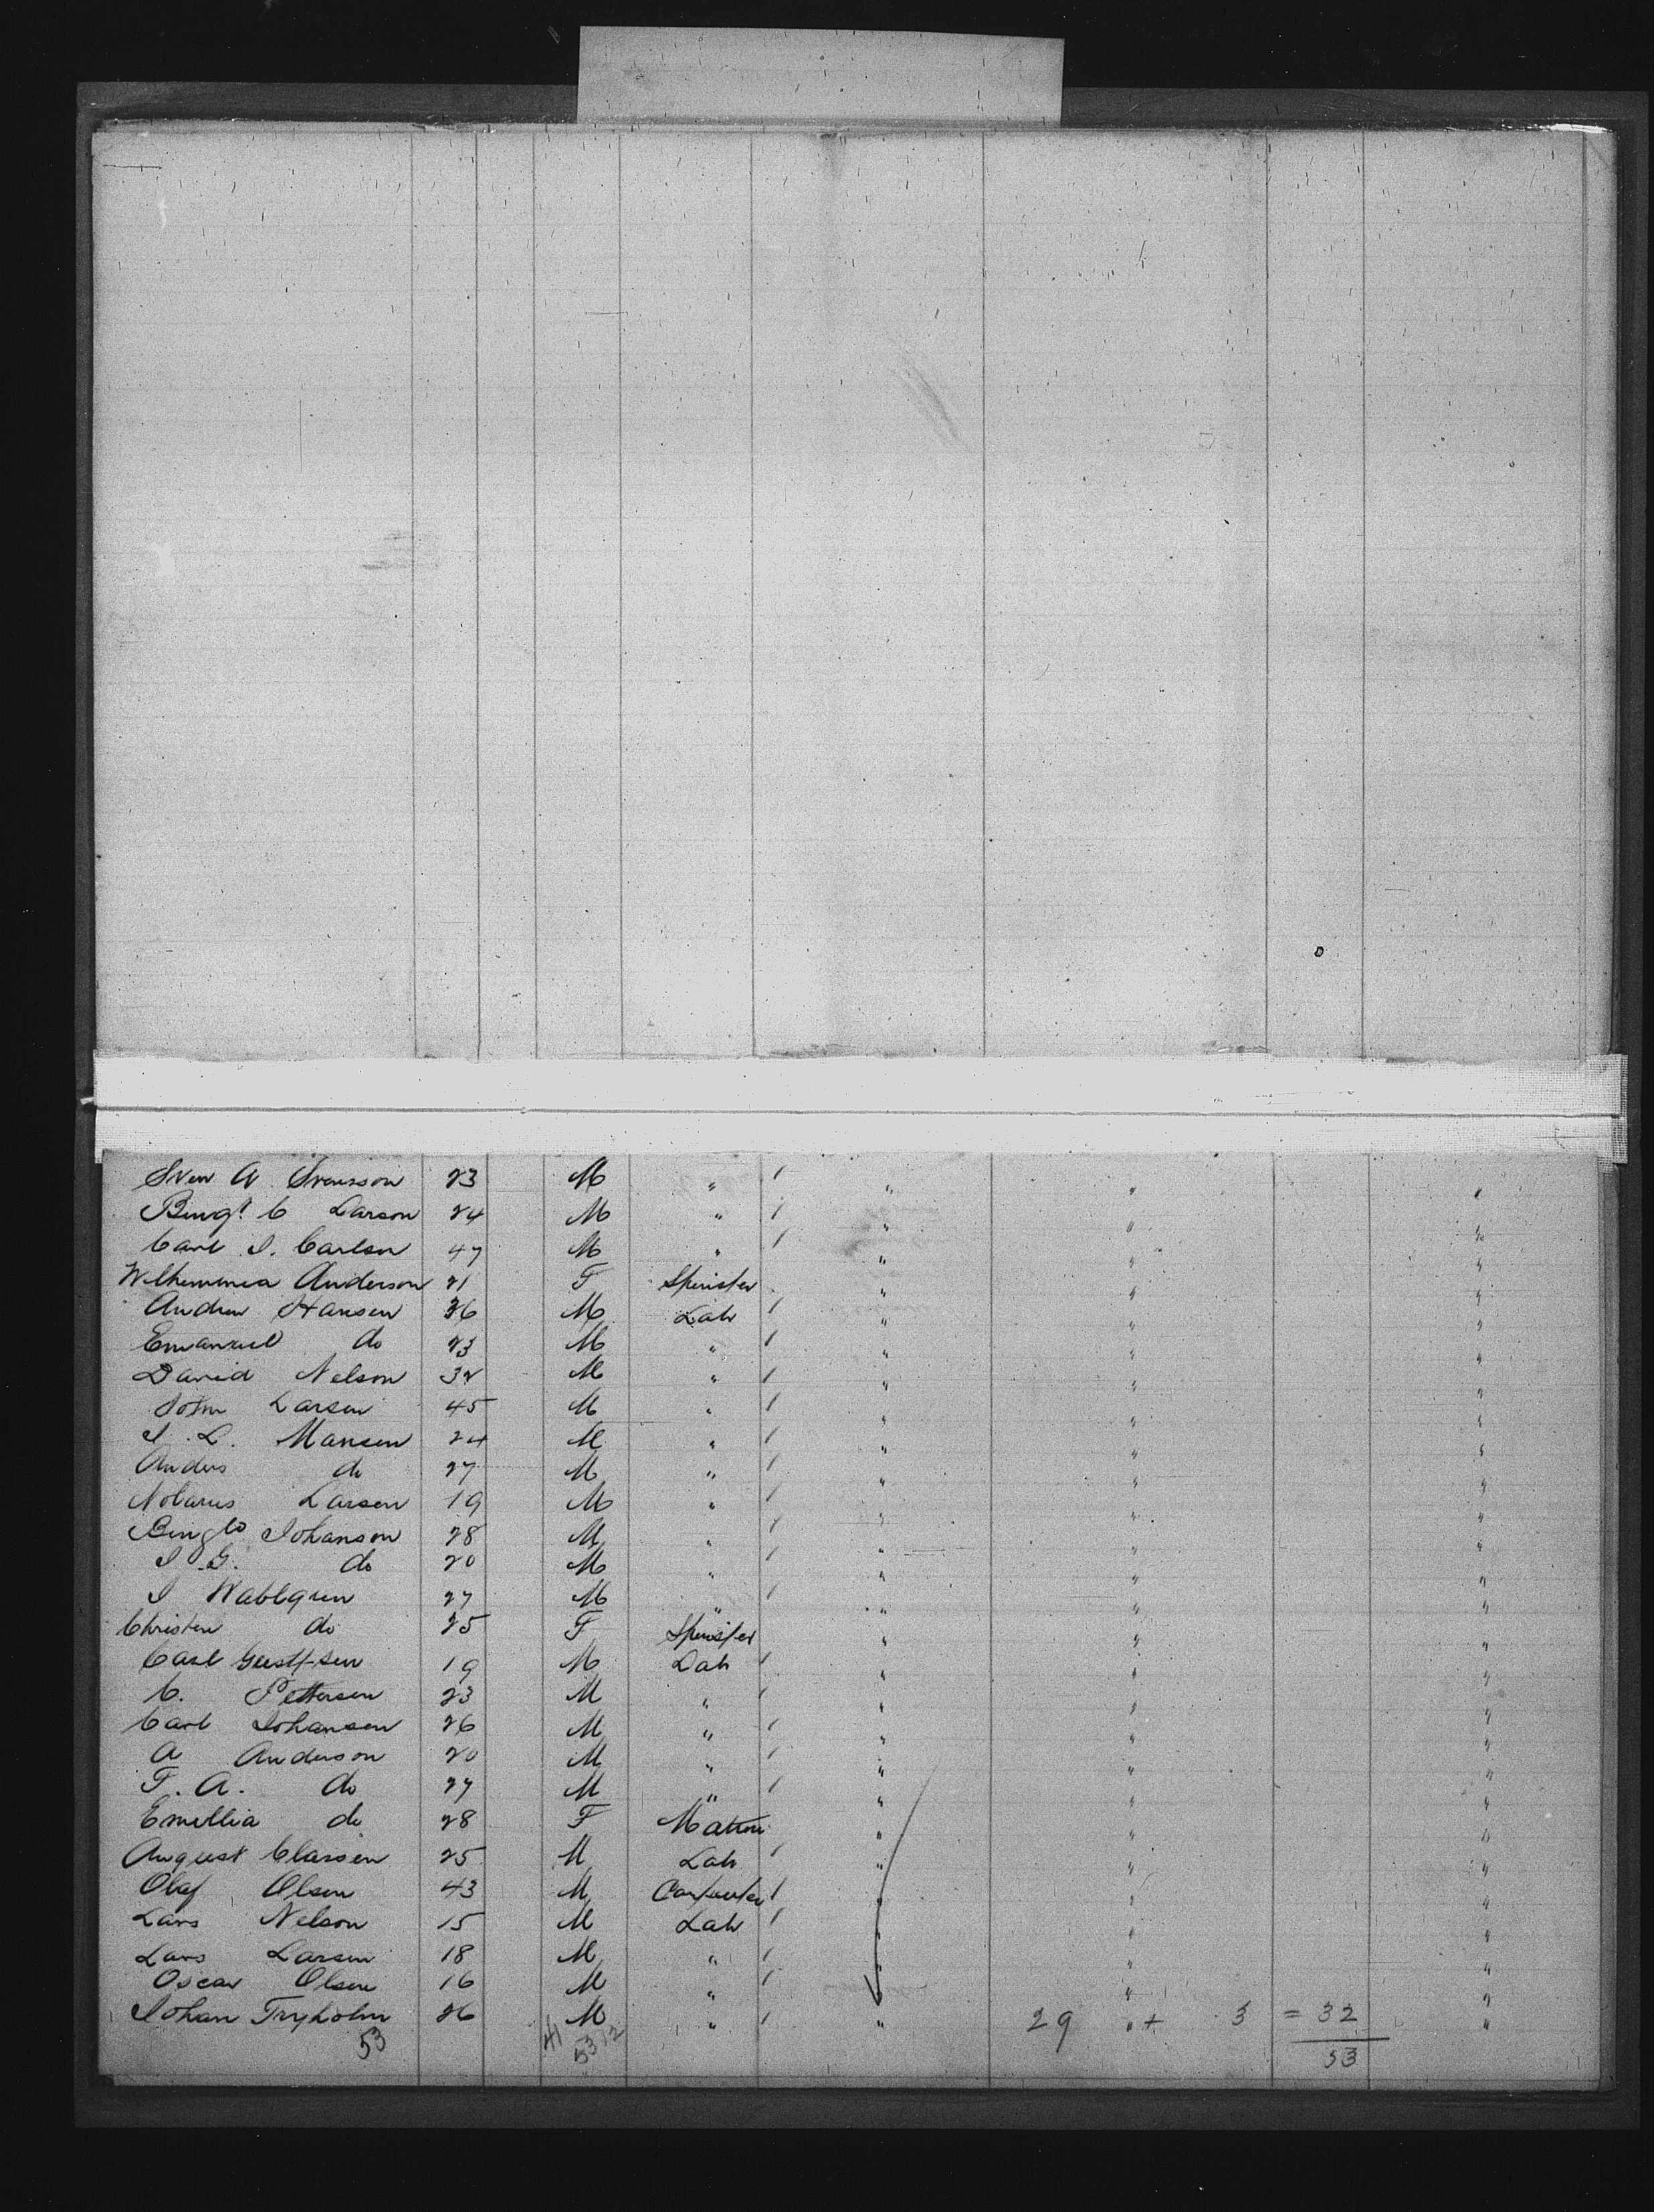 Sven A Svensson 23 M " / " " "
Bengt C Larson 24 M " / " " "
Carl J. Carlson 47 M " / " " "
Wilhemmea Anderson 21 F Spinster " " "
Andrew Hansen 36 M Lab / " " "
Emanuel do 23 M " / " " "
David Nelson 32 M " / " " "
John Larsen 45 M " / " " "
J. L. Mansen 24 M " / " " "
Anders do 27 M " / " " "
Larsen 19 M " / " " "
Johanson 28 M " / " " "
J. G. do 20 M " / " " "
J Wahlgren 27 M " / " " "
Christen do 25 F Spinster " " "
Carl Gustfsen 19 M Lab / " " "
C. Pettersen 23 M " / " " "
Carl Johansen 26 M " / " " "
A Anderson 20 M " / " " "
F. A. do 27 M " / " " "
Emellia do 28 F Matron " " "
August Clausen 25 M Lab / " " "
Olaf Olsen 43 M Carpenter / " " "
Lars Nelson 15 M Lab / " " "
Lars Larsen 18 M " / " " "
Oscar Olsen 16 M " / " " "
Johan Tryholm 26 M " / " 29 " + 3 = 32 "
53 41 12 53 53